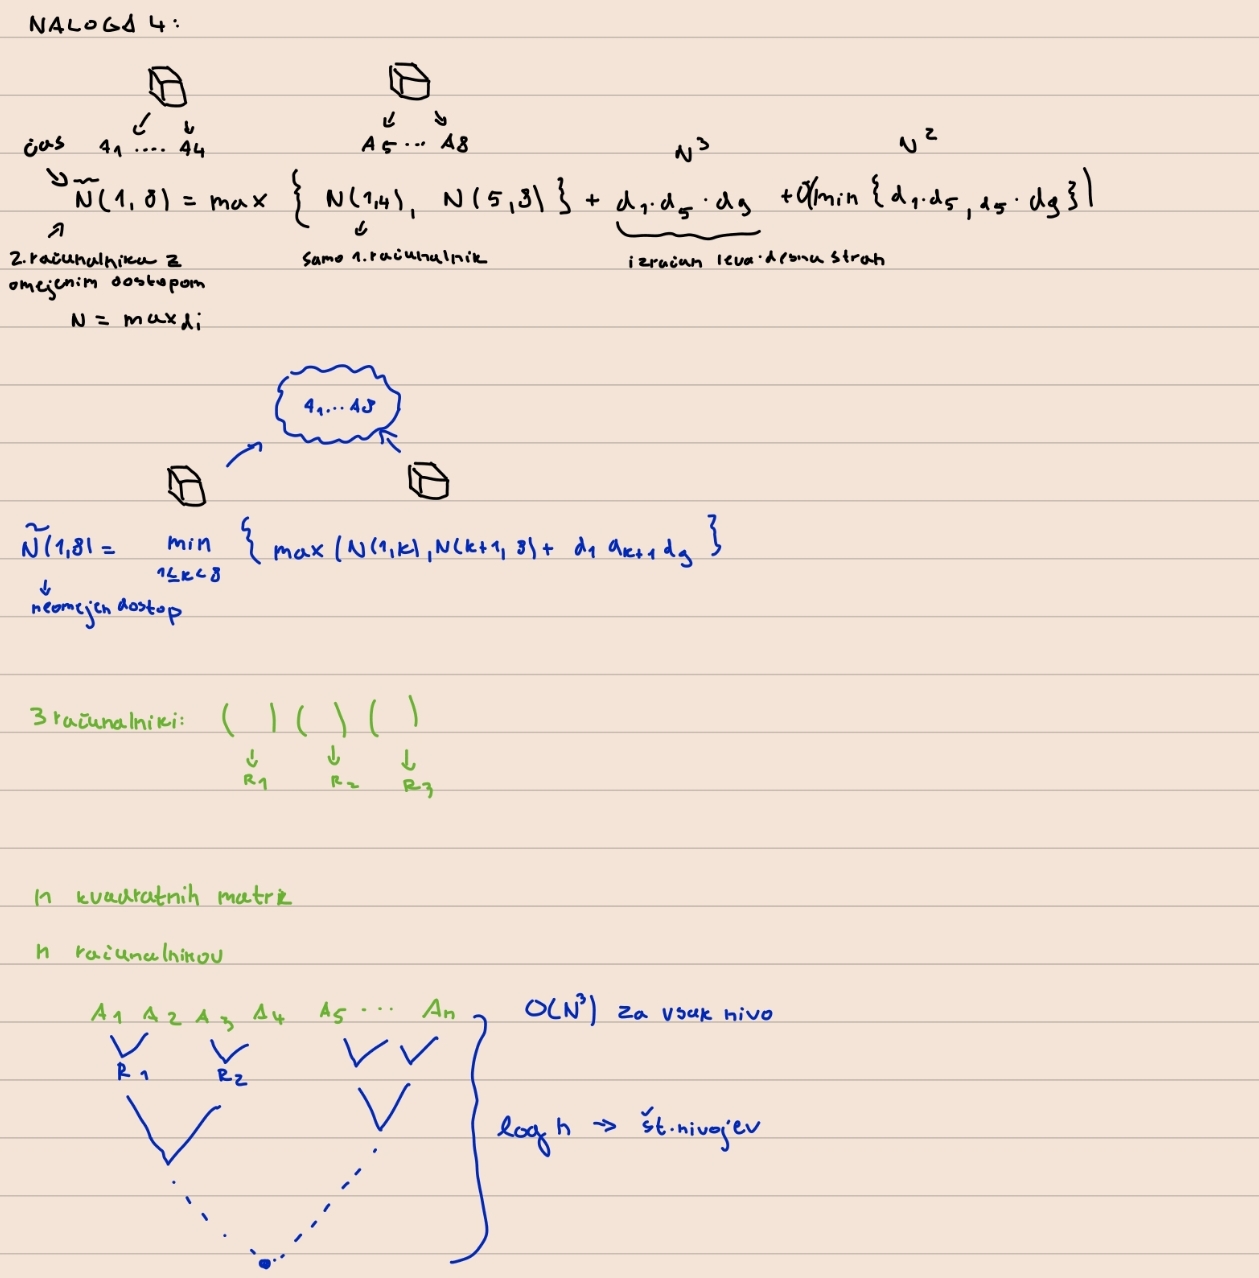 NALOGA 4:
A1 .... A4 A5 ... A8
čas
N³ N²
Ñ(1,8) = max { N(1,4), N(5,8) } + d1·d5·d9 + O(min {d1·d5, d5·d9})
2.računalnika z omejenim dostopom
samo 1.računalnik
izračun leva·desna stran
N = max di
A1...A8
Ñ(1,8) = min 1≤k<8 { max (N(1,k), N(k+1, 8) + d1 dk+1 d9 }
neomejen dostop
3 računalniki: ( ) ( ) ( )
R1 R2 R3
n kvadratnih matrik
n računalnikov
A1 A2 A3 A4 A5 ... An
O(N³) za vsak nivo
R1 R2
log n → št.nivojev